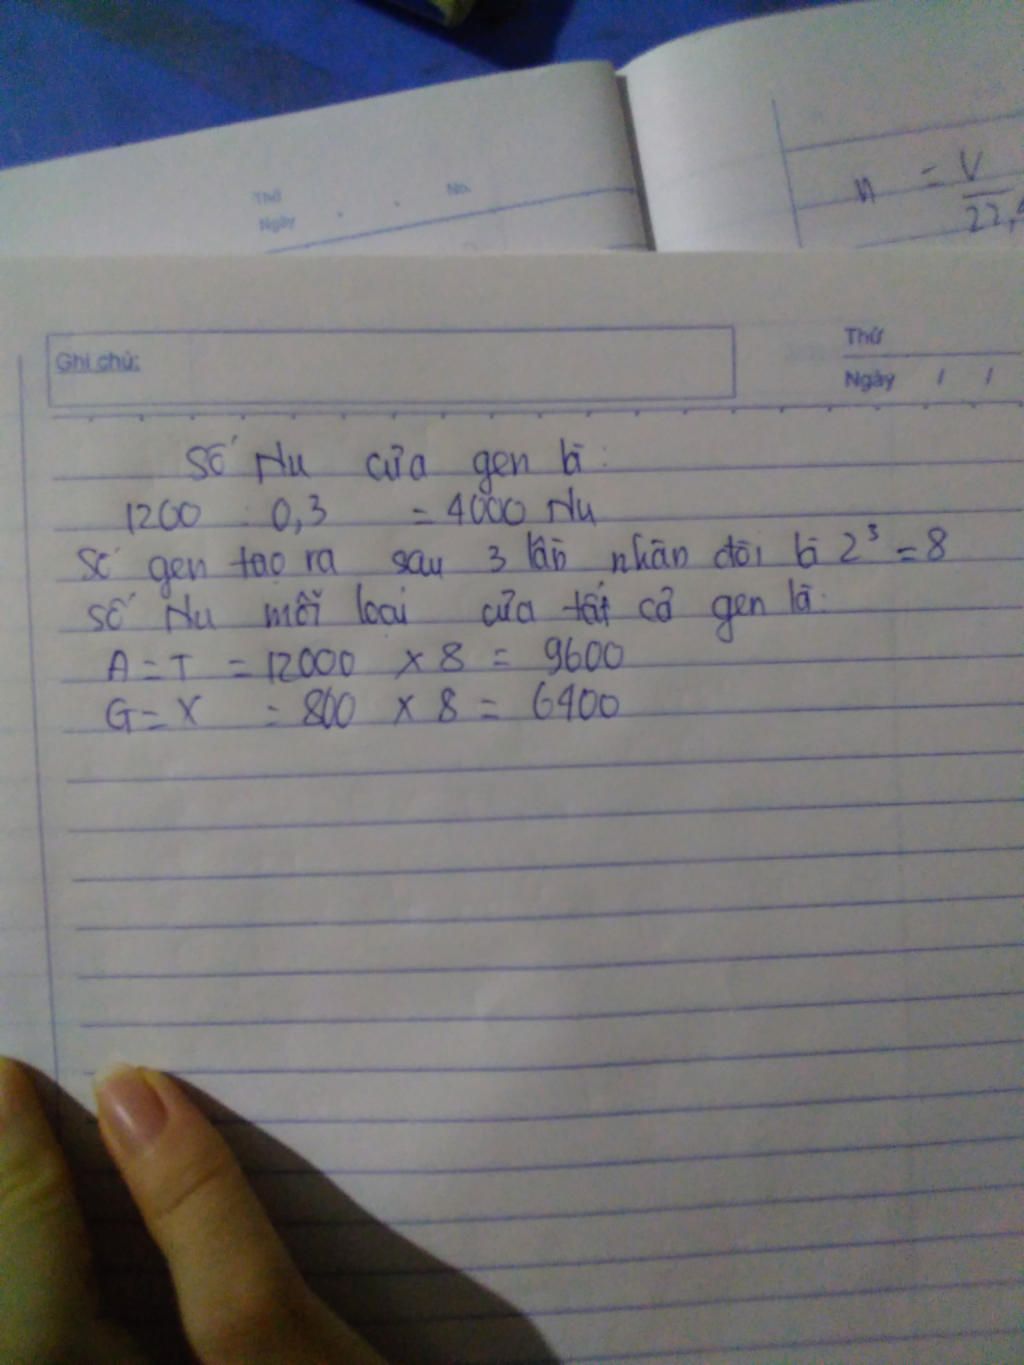 Thứ
Ngày
No.
n = V
22,4
Ghi chú:
Thứ
Ngày / /
Số Nu của gen là:
1200 : 0,3 = 4000 Nu
Số gen tạo ra sau 3 lần nhân đôi là 2³ = 8
Số Nu mỗi loại của tất cả gen là:
A = T = 12000 × 8 = 9600
G = X = 800 × 8 = 6400